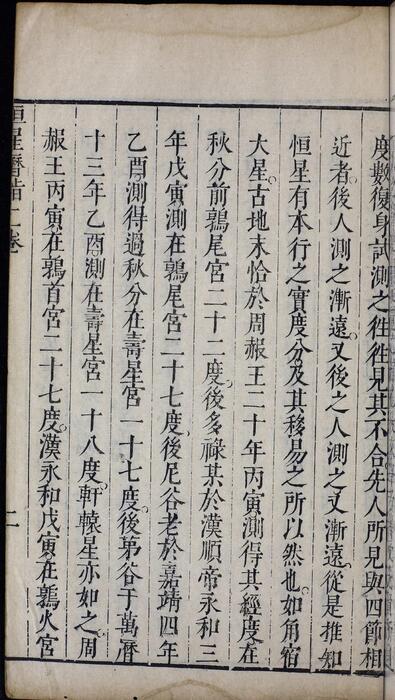 度數復身試測之徃徃見其不合先人所見與四節相
近者後人測之漸遠又後之人測之又漸遠從是推知
恒星有本行之實度分及其移易之所以然也如角宿
大星古地末恰於周赧王二十年丙寅測得其經度在
秋分前鶉尾宮二十二度後多祿某於漢順帝永和三
年戊寅測在鶉尾宮二十七度後尼谷老於嘉靖四年
乙酉測得過秋分在壽星宮一十七度後第谷于萬曆
十三年乙酉測在壽星宮一十八度軒轅星亦如之周
赧王丙寅在鶉首宮二十七度漢永和戊寅在鶉火宮
恒星曆指一卷
二